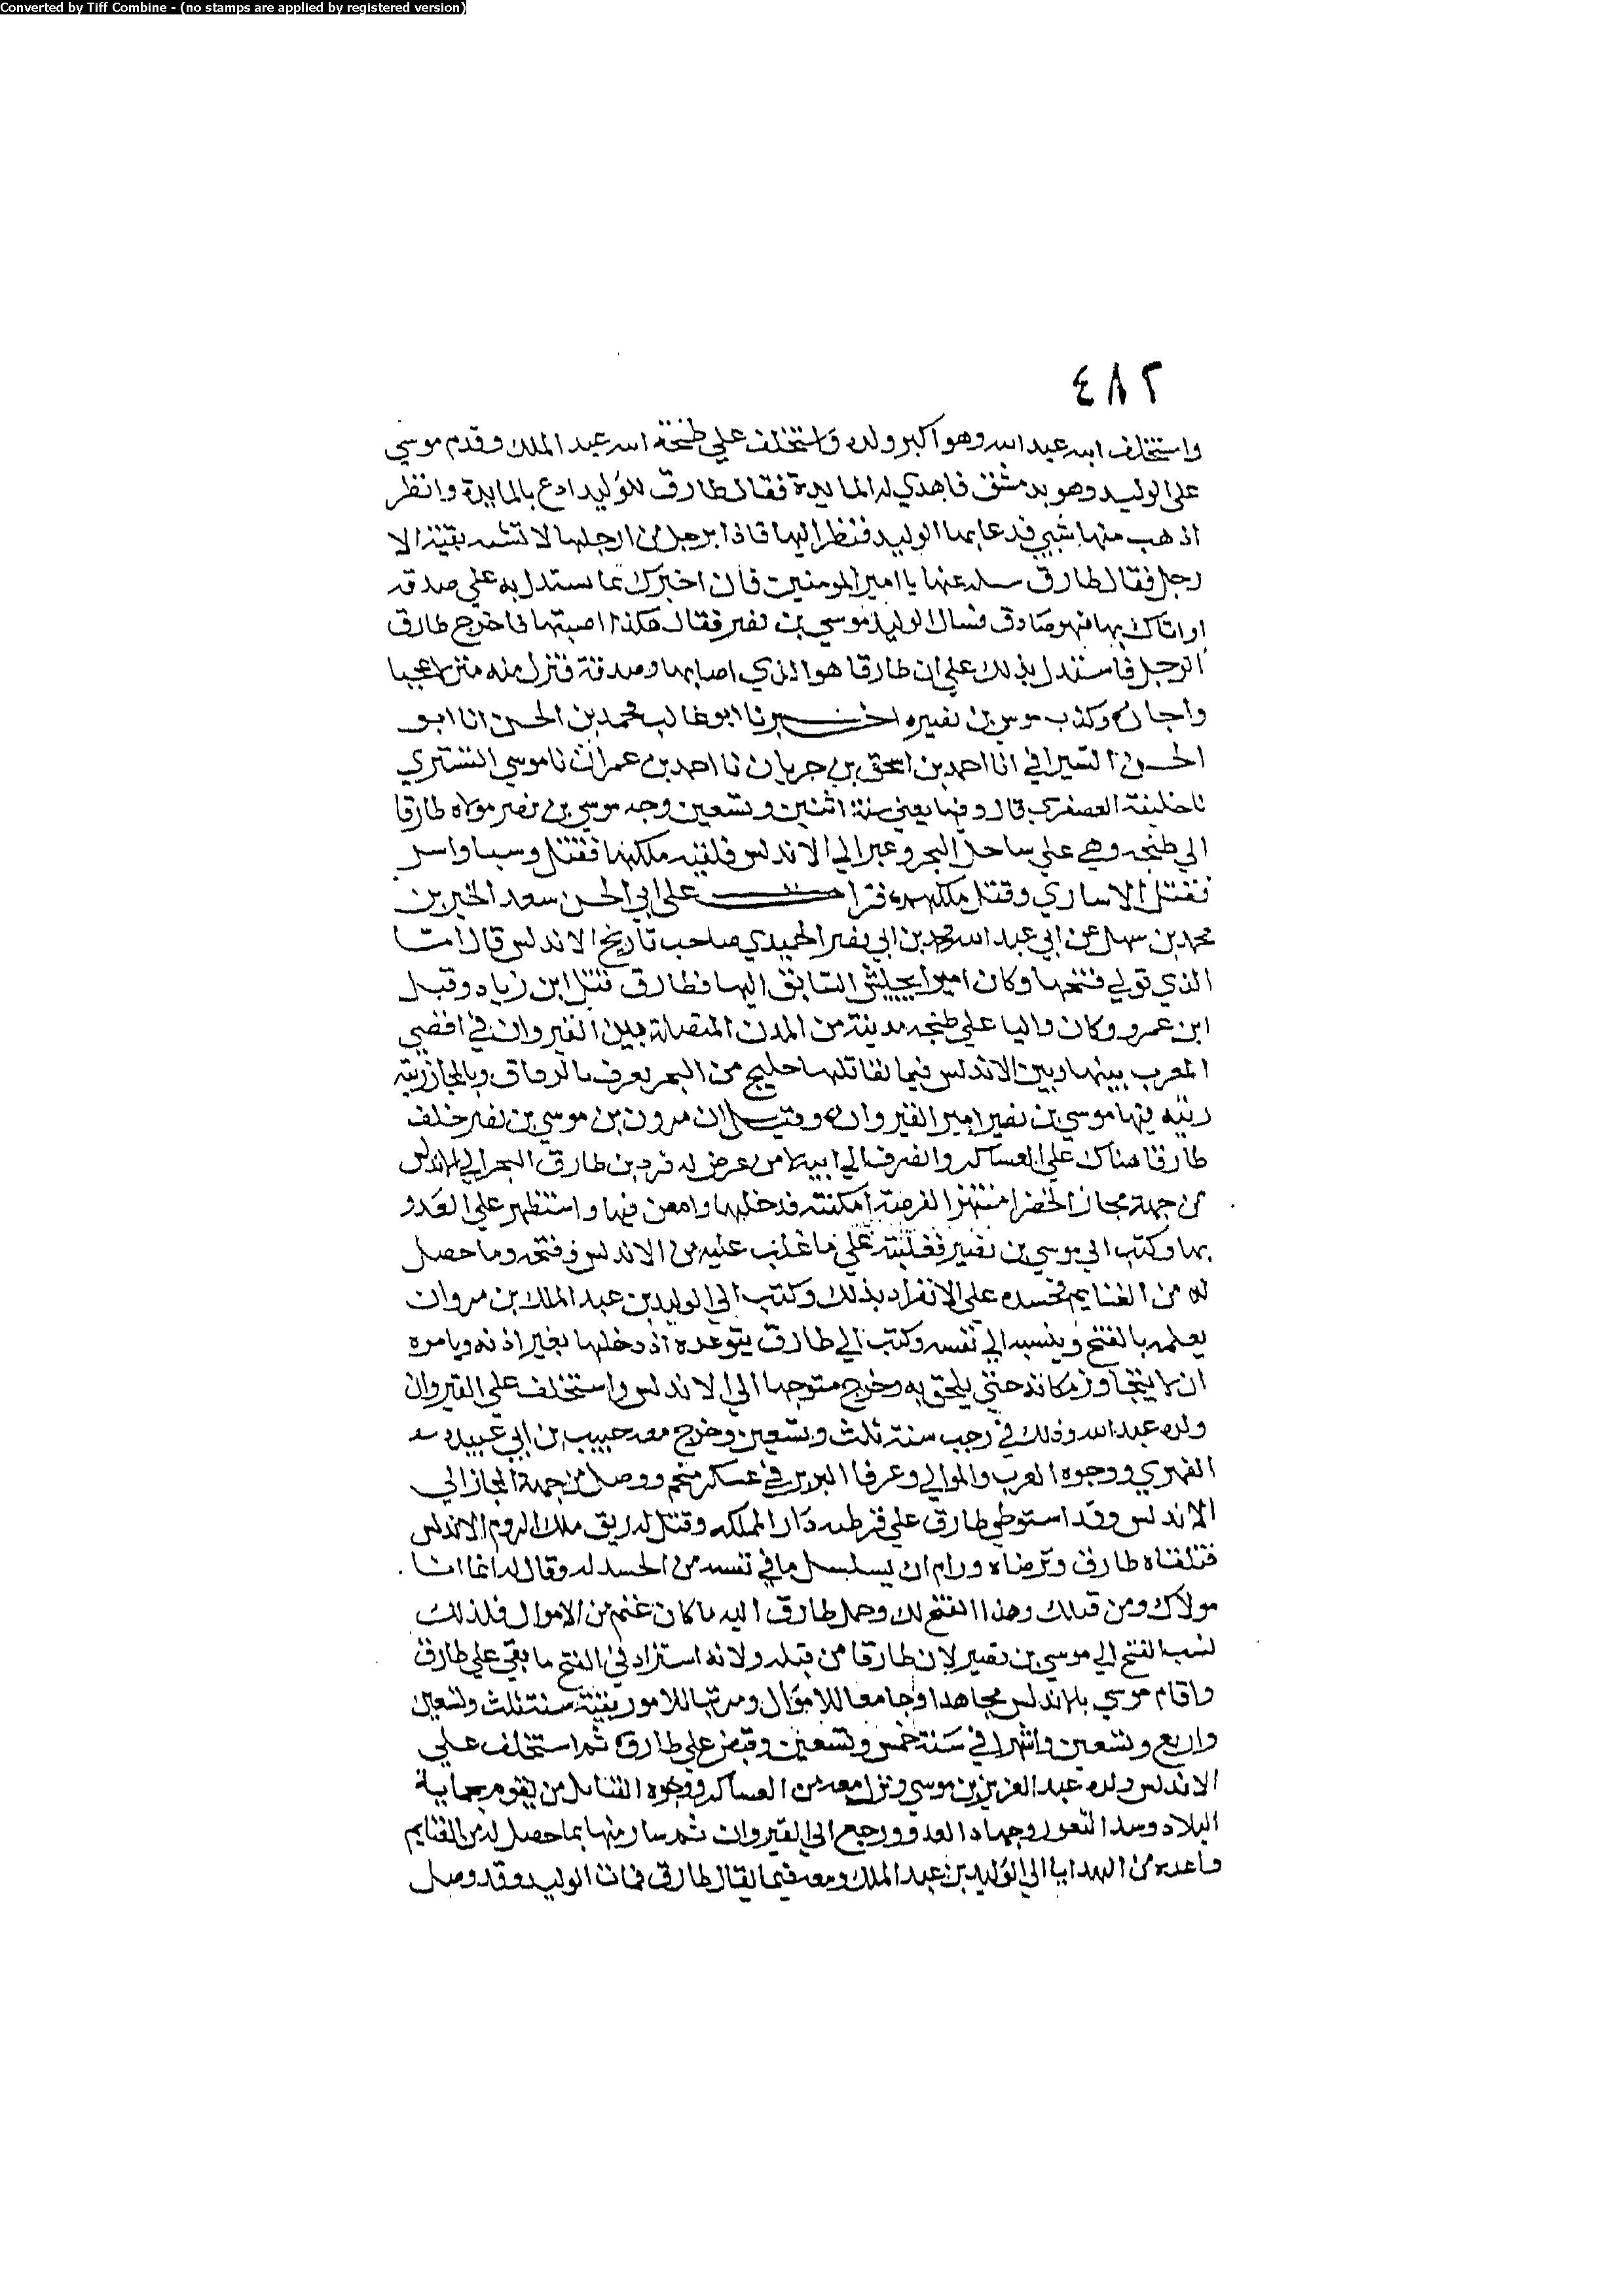 Converted by Tiff Combine - (no stamps are applied by registered version)
٤٨٢
واستخلف ابنه عبد الله وهو اكبر ولده واستخلف علي طنجة ابنه عبد الملك وقدم موسي
علي الوليد وهو بدمشق فاهدي له المايدة فقال طارق للوليد ادع بالمايدة وانظر
اذهب منها شي فدعا بها الوليد فنظر اليها فاذا برجل من ارجلها لا تشبه بقية الا
رجل فقال طارق سله عنها يا امير المومنين فان اخبرك بما يستدل به علي صدقه
او اتاك بها فهو صادق فسال الوليد موسي بن نصير فقال هكذا اصبتها فاخرج طارق
الرجل فاستدل بذلك علي ان طارقا هو الذي اصابها وصدقة فنزل منه منزلا عجيبا
واجازه وكذب موسي بن نصيره اخبرنا ابو غالب محمد بن الحسن انا ابو
الحسن السيرافي انا احمد بن اسحق بن خربان نا احمد بن عمران نا موسي التستري
نا خليفة العصفري قال وفيها يعني سنة اثنين وتسعين وجه موسي بن نصير مولاه طارقا
الي طنجه وهي علي ساحل البحر وعبر الي الاندلس فلقيه ملكها فقتل وسبا واسر
فقتل الاساري وقتل ملكهم ه قرا ت علي ابي الحسن سعد الخير بن
محمد بن سهل عن ابي عبد الله محمد بن ابي نصر الحميدي صاحب تاريخ الاندلس قال امتا
الذي تولي فتحها وكان امير الجيش السابق اليها فطارق قيل ابن زياد وقيل
ابن عمرو وكان واليا علي طنجه مدينة من المدن المتصلة ببين القيروان في اقصي
المغرب بينها وبين الاندلس فيما يقابلها خليج من البحر يعرف بالزقاق وبالمجاز رتبه
رتبه فيها موسي بن نصير امير القيروان ه وقيل ان مرون بن موسي بن نصير خلف
طارقا هناك علي العساكر وانصرف الي ابيه لامر عرض له فركب طارق البحر الي الاندلس
من جهة مجاز الخضرا منتهزا لفرصة امكنته فدخلها وامعن فيها واستظهر علي العدو
بها وكتب الي موسي بن نصير بغلبته علي ما غلب عليه من الاندلس وفتحه وما حصل
له من الغنايم فحسده علي الانفراد بذلك وكتب الي الوليد بن عبد الملك بن مروان
يعلمه بالفتح وينسبه الي نفسه وكتب الي طارق يتوعده اذ دخلها بغير اذنه ويامره
ان لا يتجاوز مكانه حتي يلحق به وخرج متوجها الي الاندلس واستخلف علي القيروان
ولده عبد الله وذلك في رجب سنة ثلث وتسعين وخرج معه حبيب بن ابي عبيده
الفهري ووجوه العرب والموالي وعرفا البربر في عسكر ضخم ووصل من جهة المجاز الي
الاندلس وقد استوطي طارق علي قرطبه دار المملكه وقتل لذريق ملك الروم الاندلس
فتلقاه طارق وترضاه ورام ان يستسل ما في نفسه من الحسد له وقال له انما انا
مولاك ومن قبلك وهذا الفتح لك وحمل طارق اليه ما كان غنم من الاموال فلذلك
نسب الفتح الي موسي بن نصير لان طارقا من قبله ولانه استزاد في الفتح ما بقي علي طارق
واقام موسي بالاندلس مجاهدا وجامعا للاموال ومرتبا للامور بقية سنة ثلث وتسعين
واربع وتسعين واشهرا في سنة خمس وتسعين وقبض علي طارق ثم استخلف علي
الاندلس ولده عبد العزيز بن موسي وترك معه من العساكر ووجوه القبائل من يقوم بحماية
البلاد وسد الثغور وجهاد العدو ورجع الي القيروان ثم سار منها بما حصل له من الغنايم
واعده من الهدايا الي الوليد بن عبد الملك ومعه فيما يقال طارق فمات الوليد وقد وصل